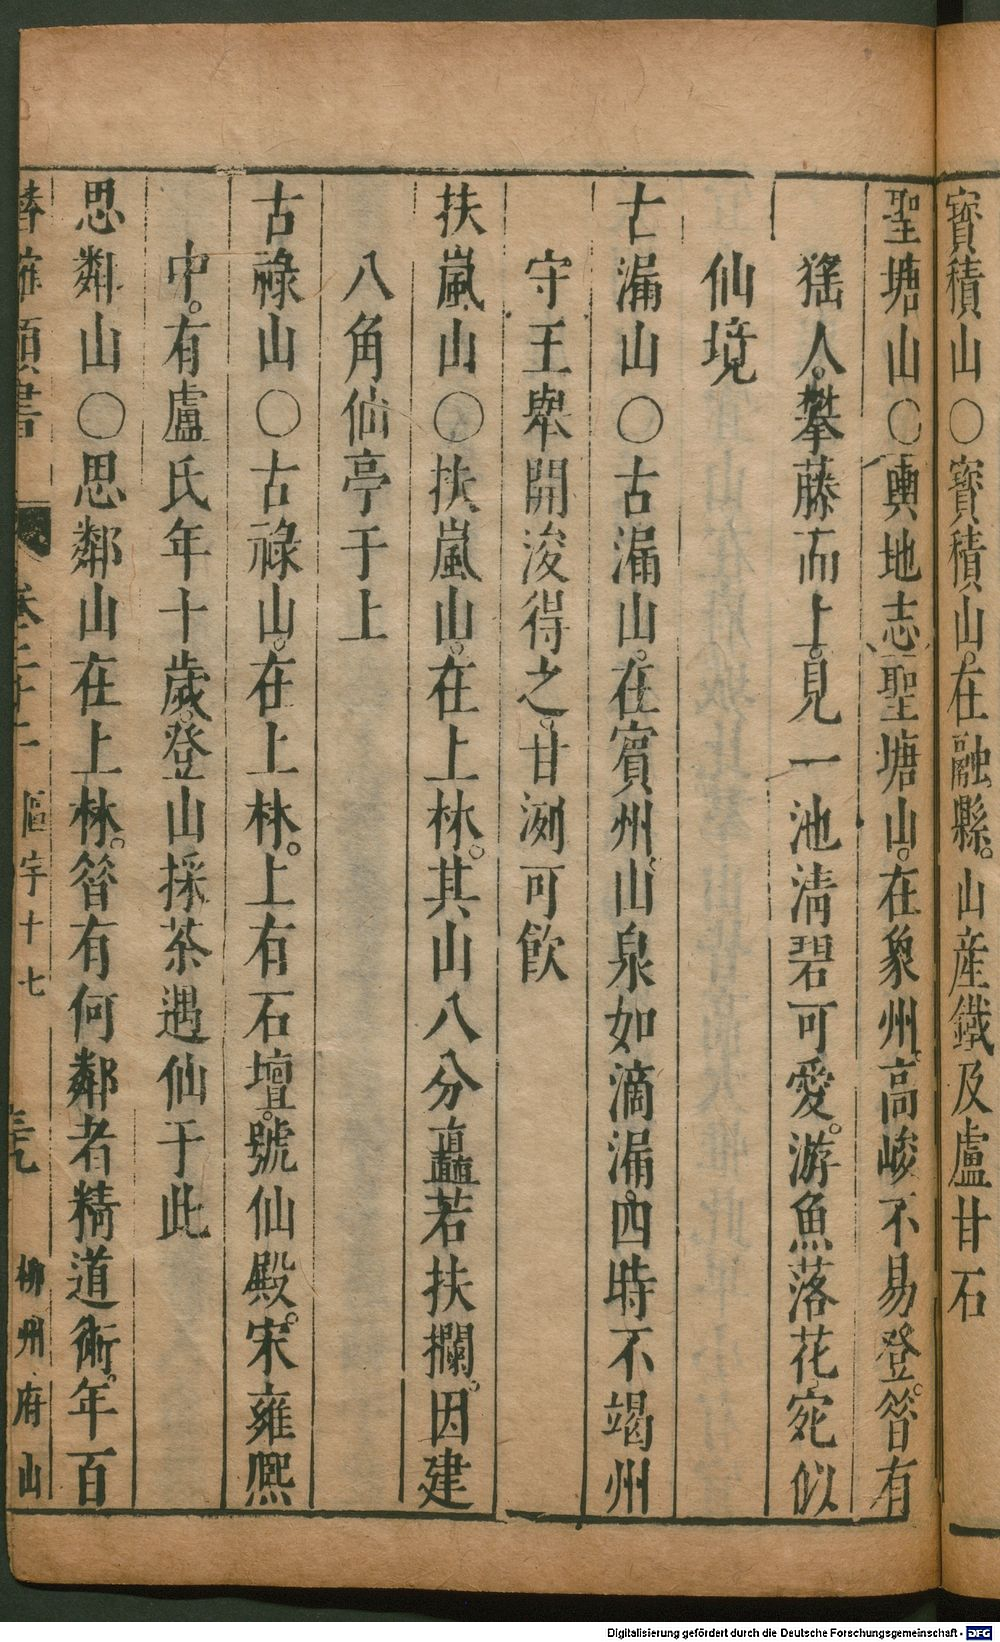 寳積山○寳積山。在融縣。山産鐵及盧甘石
聖塘山○輿地志聖塘山。在象州。高峻不易登。昝有
猺人。攀藤而上。見一池淸碧可愛。游魚落花。宛似
仙境
古漏山○古漏山。在賓州。山泉如滴漏。四時不竭州
守王舉開浚得之。甘冽可飮
扶嵐山○扶嵐山。在上林。其山八分矗若扶攔。因建
八角仙亭于上
古祿山○古祿山。在上林。上有石壇。號仙殿。宋雍熈
中。有盧氏年十歲。登山採茶遇仙于此
思鄰山○思鄰山在上林。昝有何鄰者精道術。年百
卷二十一 區宇十七 柳州府山
Digitalisierung gefördert durch die Deutsche Forschungsgemeinschaft - DFG